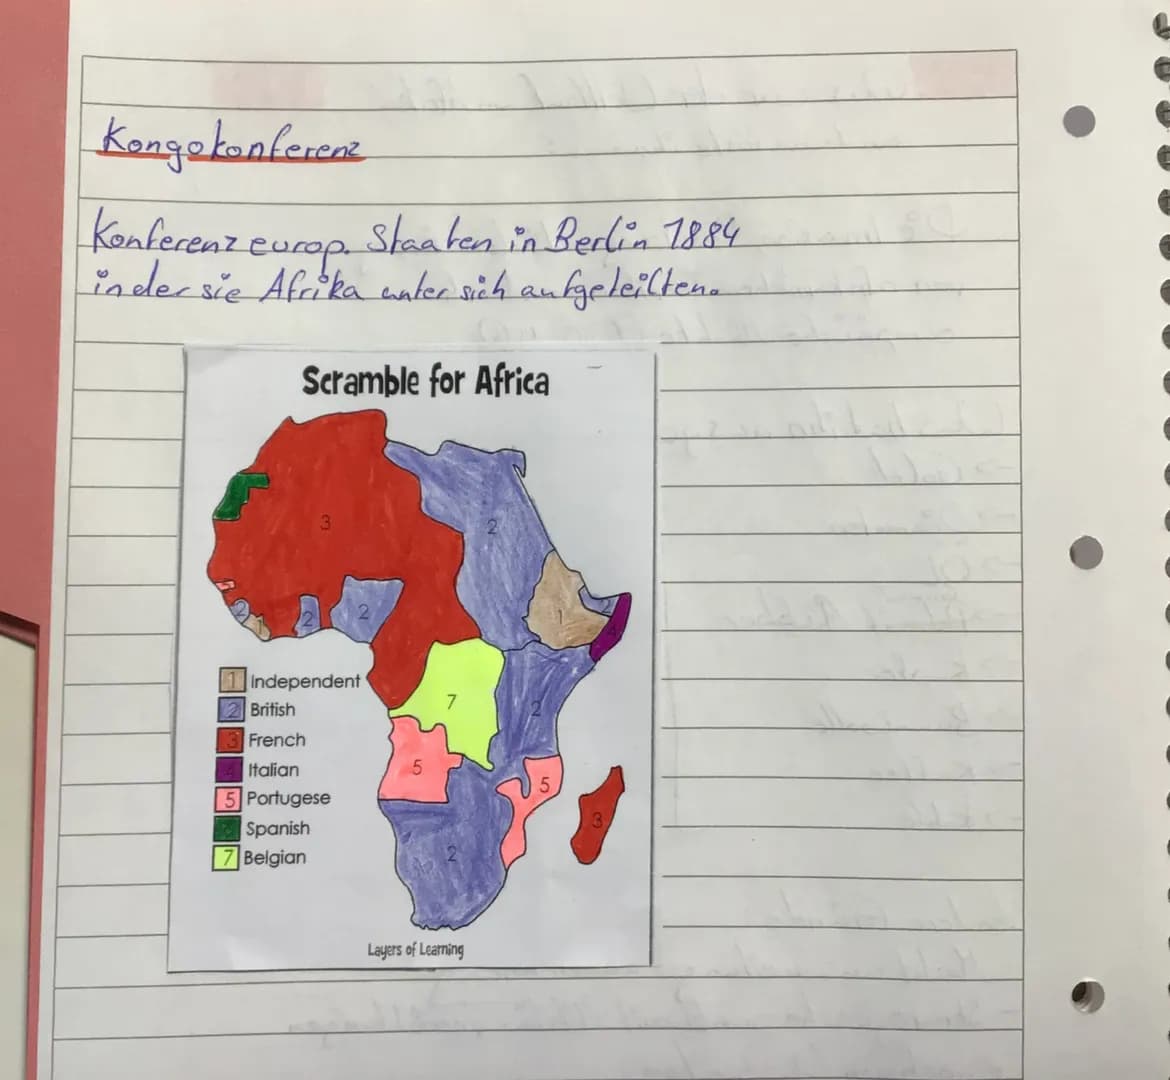 Kongokonferenz
Konferenz europ. Staaten in Berlin 1884
in der sie Afrika unter sich aufgeteilten.
Scramble for Africa
3
2
5
2
1
2
2
2
1
4
7
2
5
5
3
2
1 Independent
2 British
3 French
4 Italian
5 Portugese
Spanish
7 Belgian
Layers of Learning